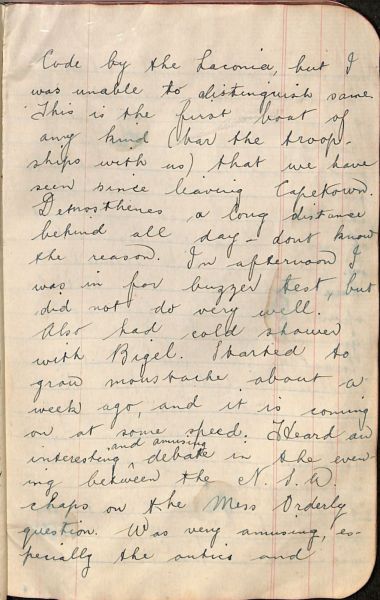 Code by the Laconia, but I
was unable to distinguish same.
This is the first boat of
any kind (bar the troop-
ships with us) that we have
seen since leaving Capetown.
Demosthenes a long distance
behind all day - dont know
the reason. In afternoon I
was in for buzzer test, but
did not do very well.
Also had cold shower
with Bigel. Started to
grow moustache about a
week ago, and it is coming
on at some speed. Heard an
interesting and amusing debate in the even-
ing between the N.S.W.
chaps on the Mess Orderly
question. Was very amusing, es-
pecially the antics and